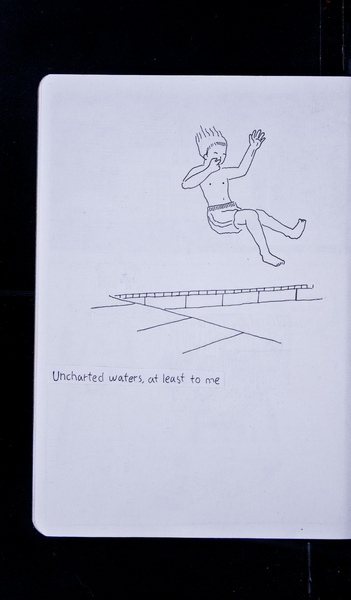 Uncharted waters, at least to me